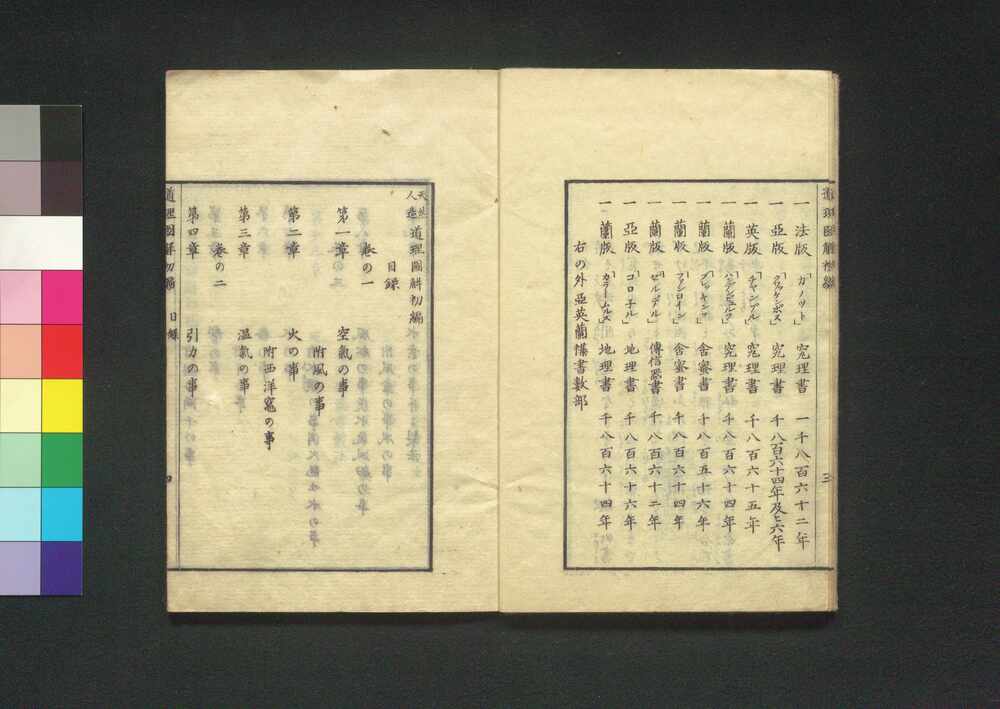 一 法版 「ガノット」 究理書 一千八百六十二年
一 亞版 「クワッケンボス」 究理書 千八百六十四年及ヒ六年
一 英版 「チャンブル」 究理書 千八百六十五年
一 蘭版 究理書 千八百六十四年
一 蘭版 舎密書 千八百五十六年
一 蘭版 舎密書 千八百六十四年
一 蘭版 傳信器書 千八百六十二年
一 亞版 「コロ子ル」 地理書 千八百六十六年
一 蘭版 「カラームルス」 地理書 千八百六十四年
右の外亞英蘭雜書數部
三
天然人造 道理圖解初編
目録
卷の一
第一章 空氣の事
附風の事
第二章 火の事
附西洋竈の事
第三章 温氣の事
卷の二
第四章 引力の事
道理圖解初編 目録 四